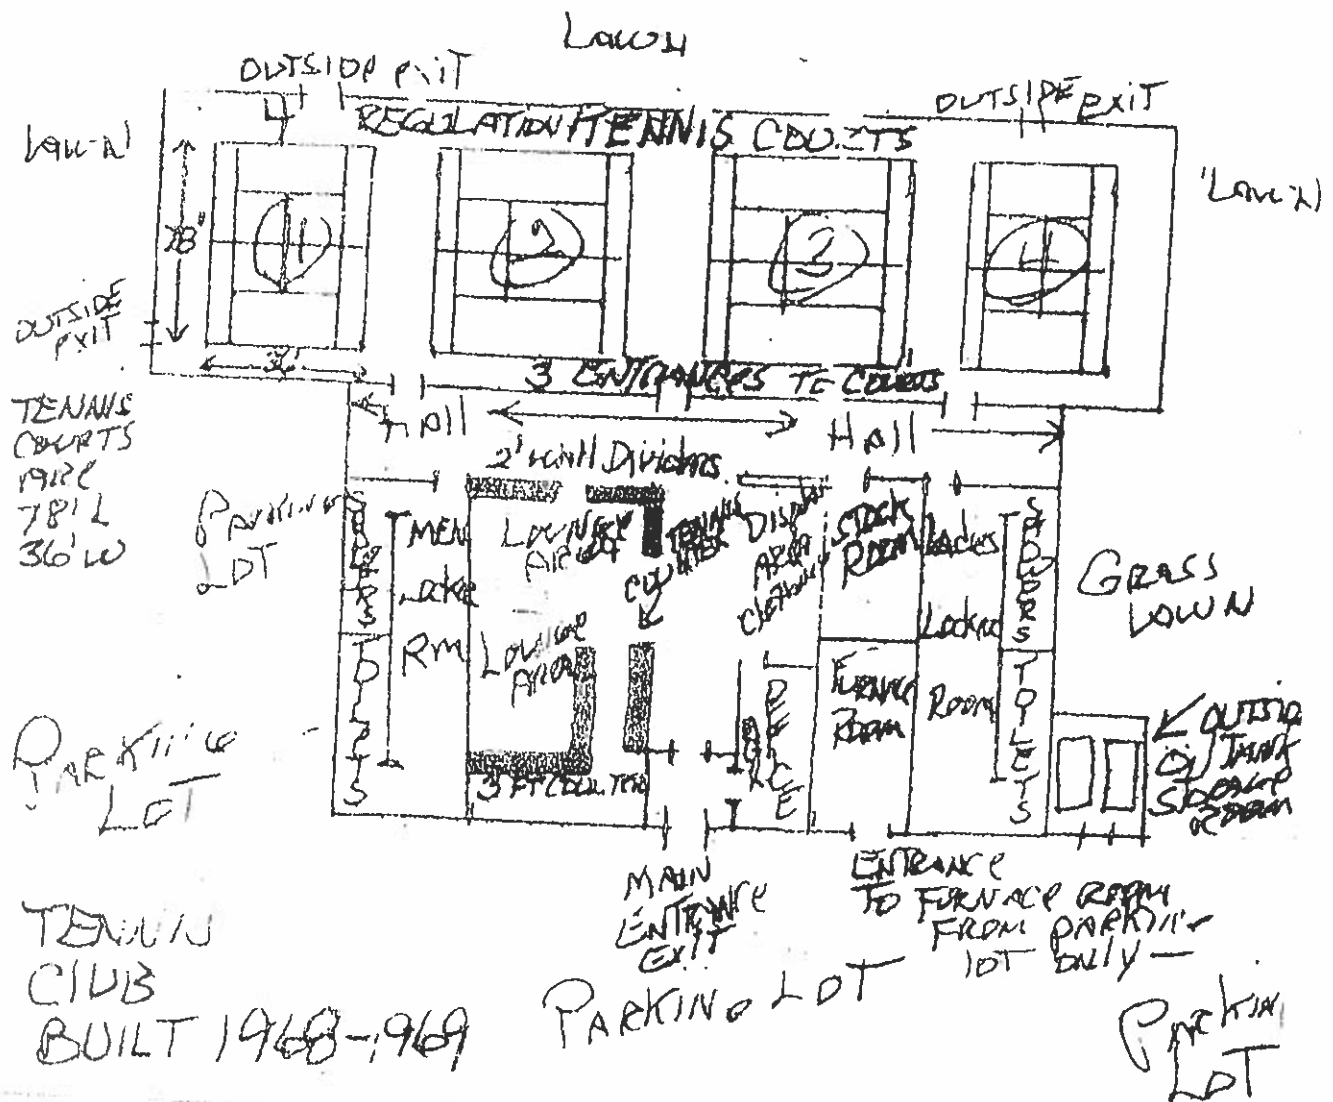 LAWN
OUTSIDE EXIT
OUTSIDE EXIT
REGULATION TENNIS COURTS
LAWN
LAWN
1
2
3
4
78"
36'
OUTSIDE
EXIT
3 ENTRANCES TO COURTS
TENNIS
COURTS
ARE
78'L
36'W
HAll
HAll
2' wall Dividers
PARKING
LOT
SHOWERS
TOILETS
MEN
Locker
Rm
LOUNGE
AREA
LOUNGE
AREA
TENNIS
COUNTER
DISPLAY
AREA
Clothing
STOCK
ROOM
FURNACE
ROOM
Ladies
Locker
Room
SHOWERS
TOILETS
GRASS
LAWN
OFFICE
3 FT COUNTER
PARKING
LOT
OUTSIDE
OIL TANK
STORAGE
ROOM
MAIN
ENTRANCE
EXIT
ENTRANCE
TO FURNACE ROOM
FROM PARKING
LOT ONLY —
TENNIS
CLUB
BUILT 1968-1969
PARKING LOT
PARKIN
LOT